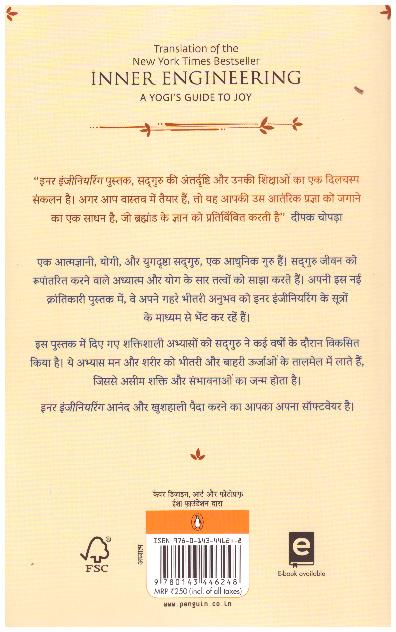 Translation of the
New York Times Bestseller
INNER ENGINEERING
A YOGI'S GUIDE TO JOY
“इनर इंजीनियरिंग पुस्तक, सद्‌गुरु की अंतर्दृष्टि और उनकी शिक्षाओं का एक दिलचस्प
संकलन है। अगर आप वास्तव में तैयार हैं, तो यह आपकी उस आंतरिक प्रज्ञा को जगाने
का एक साधन है, जो ब्रह्मांड के ज्ञान को प्रतिबिंबित करती है” दीपक चोपड़ा
एक आत्मज्ञानी, योगी, और युगदृष्टा सद्‌गुरु, एक आधुनिक गुरु हैं। सद्‌गुरु जीवन को
रूपांतरित करने वाले अध्यात्म और योग के सार तत्वों को साझा करते हैं। अपनी इस नई
क्रांतिकारी पुस्तक में, वे अपने गहरे भीतरी अनुभव को इनर इंजीनियरिंग के सूत्रों
के माध्यम से भेंट कर रहें हैं।
इस पुस्तक में दिए गए शक्तिशाली अभ्यासों को सद्‌गुरु ने कई वर्षों के दौरान विकसित
किया है। ये अभ्यास मन और शरीर को भीतरी और बाहरी ऊर्जाओं के तालमेल में लाते हैं,
जिससे असीम शक्ति और संभावनाओं का जन्म होता है।
इनर इंजीनियरिंग आनंद और खुशहाली पैदा करने का आपका अपना सॉफ्टवेयर है।
कवर डिजाइन, आर्ट और फोटोग्राफ
ईशा फाउंडेशन द्वारा
FSC
अध्यात्म
ISBN 978-0-143-44624-8
9 780143 446248
MRP ₹250 (incl. of all taxes)
www.penguin.co.in
e
E-book available